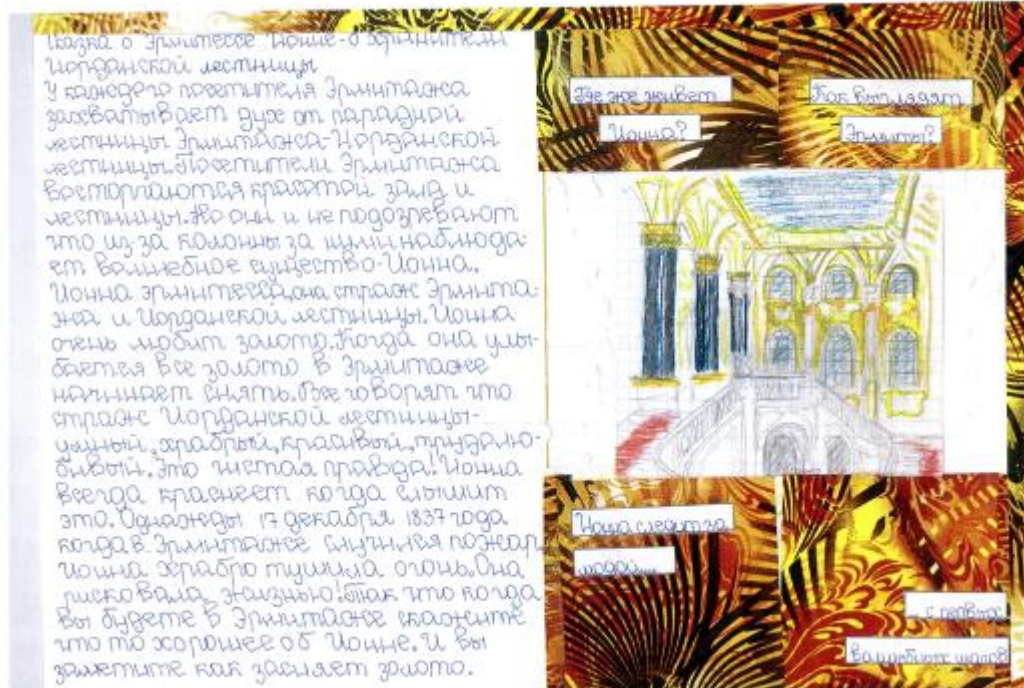 Сказка о Эрмитессе Ионне-о хранители
Иорданской лестницы
У каждого посетителя Эрмитажа
захватывает дух от парадной
лестницы Эрмитажа-Иорданской
лестницы. Посетители Эрмитажа
восторгаются красотой зала и
лестницы. Но они и не подозревают
что из-за колонны за ними наблюда-
ет волшебное существо-Ионна.
Ионна эрмитесса, она страж Эрмита-
жа и Иорданской лестницы. Ионна
очень любит золото. Когда она улы-
бается все золото в Эрмитаже
начинает сиять. Все говорят что
страж Иорданской лестницы-
умный, храбрый, красивый, трудолю-
бивый. Это чистая правда! Ионна
всегда краснеет когда слышит
это. Однажды 17 декабря 1837 года
когда в Эрмитаже случился пожар
Ионна храбро тушила огонь. Она
рисковала жизнью! Так что когда
вы будете в Эрмитаже скажите
что то хорошее об Ионне. И вы
заметите как засияет золото.
Где же живет
Ионна?
Как выглядят
Эрмиты?
Ионна следит за
модой...
с первых
волшебных шагов